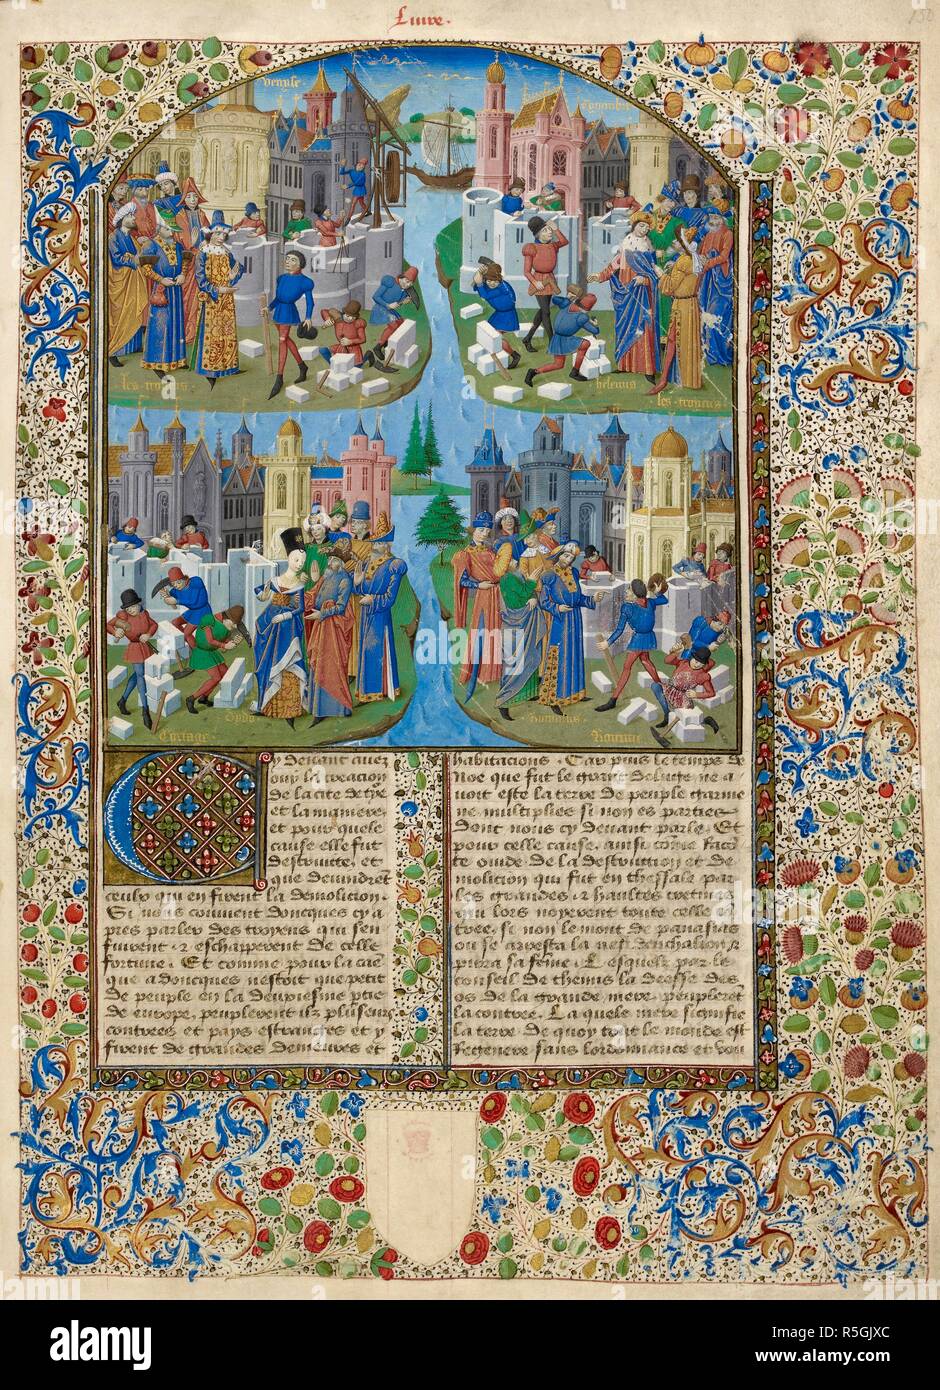 Livre.
150
venyse
les troyens
helenus
les troyens
Dydo
Cartage
Romulus
Romme
Cy devant avez
ouy la creation
de la cite de tyr
et la maniere
et pour quele
cause elle fut
destruicte, et
que devindrent
ceulx qui en firent la demolicion.
Si nous convient doncques cy a
pres parler des troyens qui sen
fuirent & eschapperent de celle
fortune. Et comme pour la cau
que adoncques nestoit que petit
de peuple en la deuxiesme ptie
de europe, peuplerent ilz plusieurs
contrees et pays estranges et y
firent de grandes demeures et
habitacions. Car puis le temps de
Noe que fut le grant deluge ne a
voit este la terre de peuple garnie
ne multipliee si non es parties
dont nous cy devant parle. Et
pour celle cause, aussi come facon
te ovide de la destruction et de
molicion qui fut en thessale par
les grandes & haultes cretines
qui lors noyerent toute celle con
tree, si non le mont de parnasus
ou se arresta la nef deucalion &
pirra sa feme. Lesquelz par le
conseil de themis la deesse des
os de la grande mere, peuplerent
la contree. La quele mere signifie
la terre de quoy tout le monde est
regenere sans lordonnance et vou
alamy
Image ID: R5GJXC
www.alamy.com